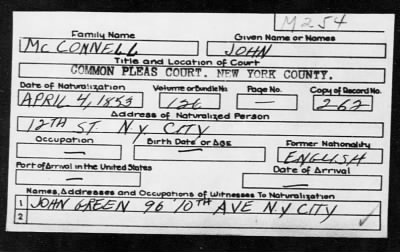 M254
Family Name Given Name or Names
McCONNELL JOHN
Title and Location of Court
COMMON PLEAS COURT. NEW YORK COUNTY.
Date of Naturalization Volume or Bundle No. Page No. Copy of Record No.
APRIL 4, 1853 126 — 262
Address of Naturalized Person
12TH ST N.Y. CITY
Occupation Birth Date or Age Former Nationality
— — ENGLISH
Port of Arrival in the United States Date of Arrival
— —
Names, Addresses and Occupations of Witnesses To Naturalization
1 JOHN GREEN 96 10TH AVE N.Y CITY
2